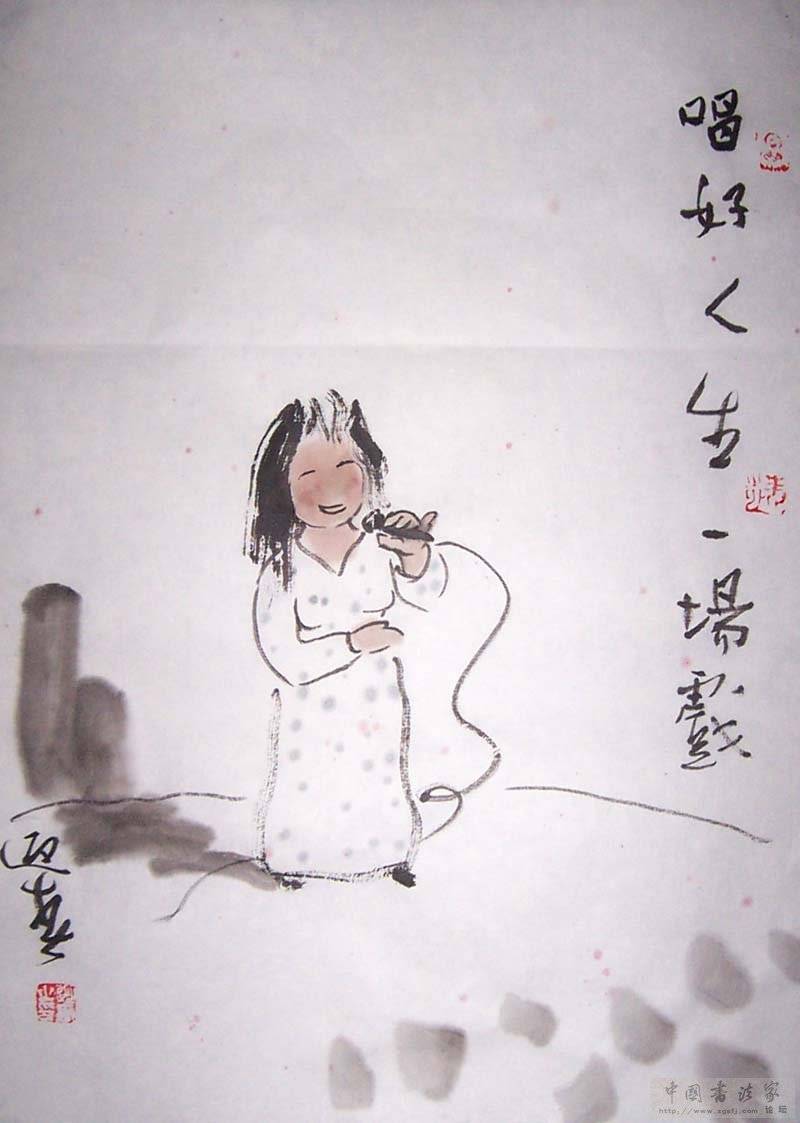 唱好人生一場戲
中國書法家
http://www.zgsfj.com 论坛